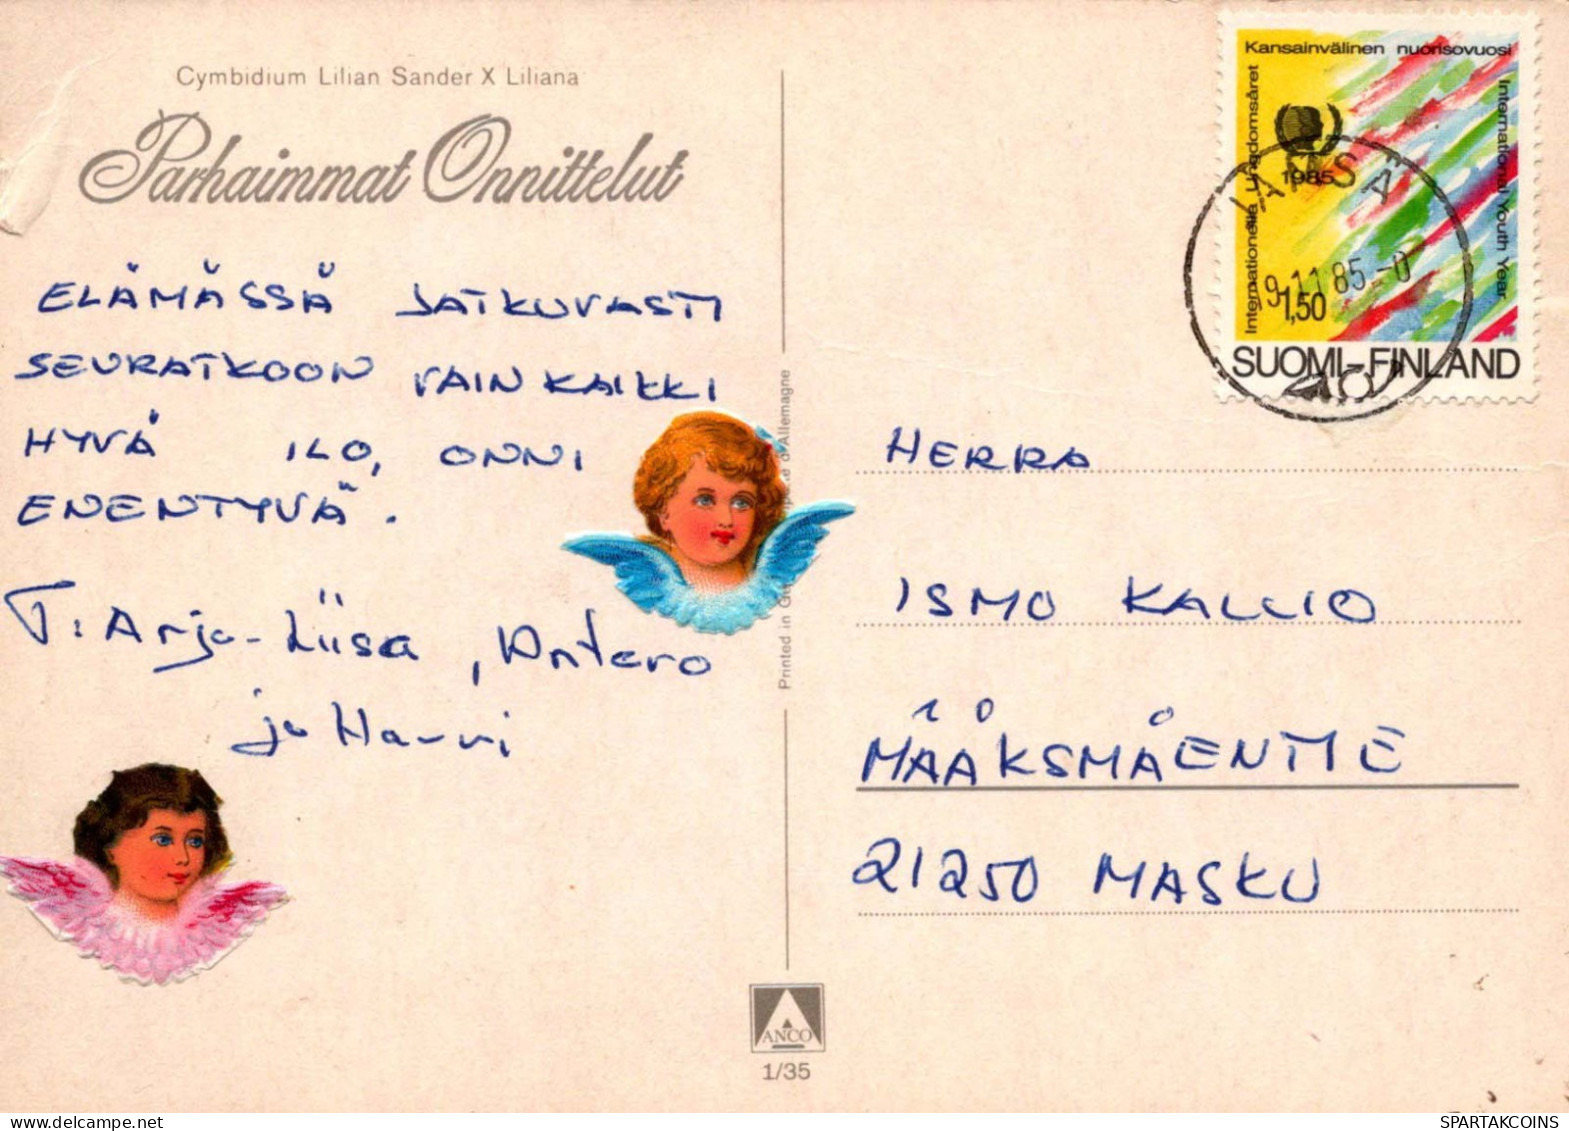 Cymbidium Lilian Sander X Liliana
Parhaimmat Onnittelut
ELÄMÄSSÄ JATKUVASTI
SEURATKOON VAIN KAIKKI
HYVÄ ILO, ONNI
ENENTYVÄ.
T: Arja-Liisa, Antero
ja Harri
Kansainvälinen nuorisovuosi
Internationella Ungdomsåret
International Youth Year
1985
1,50
SUOMI-FINLAND
9.11.85.-0
HERRA
ISMO KALLIO
MÄÄKSMÄENTIE
21250 MASKU
Printed in
d'Allemagne
ANCO
1/35
WWW.SPARTAKCOINS.COM